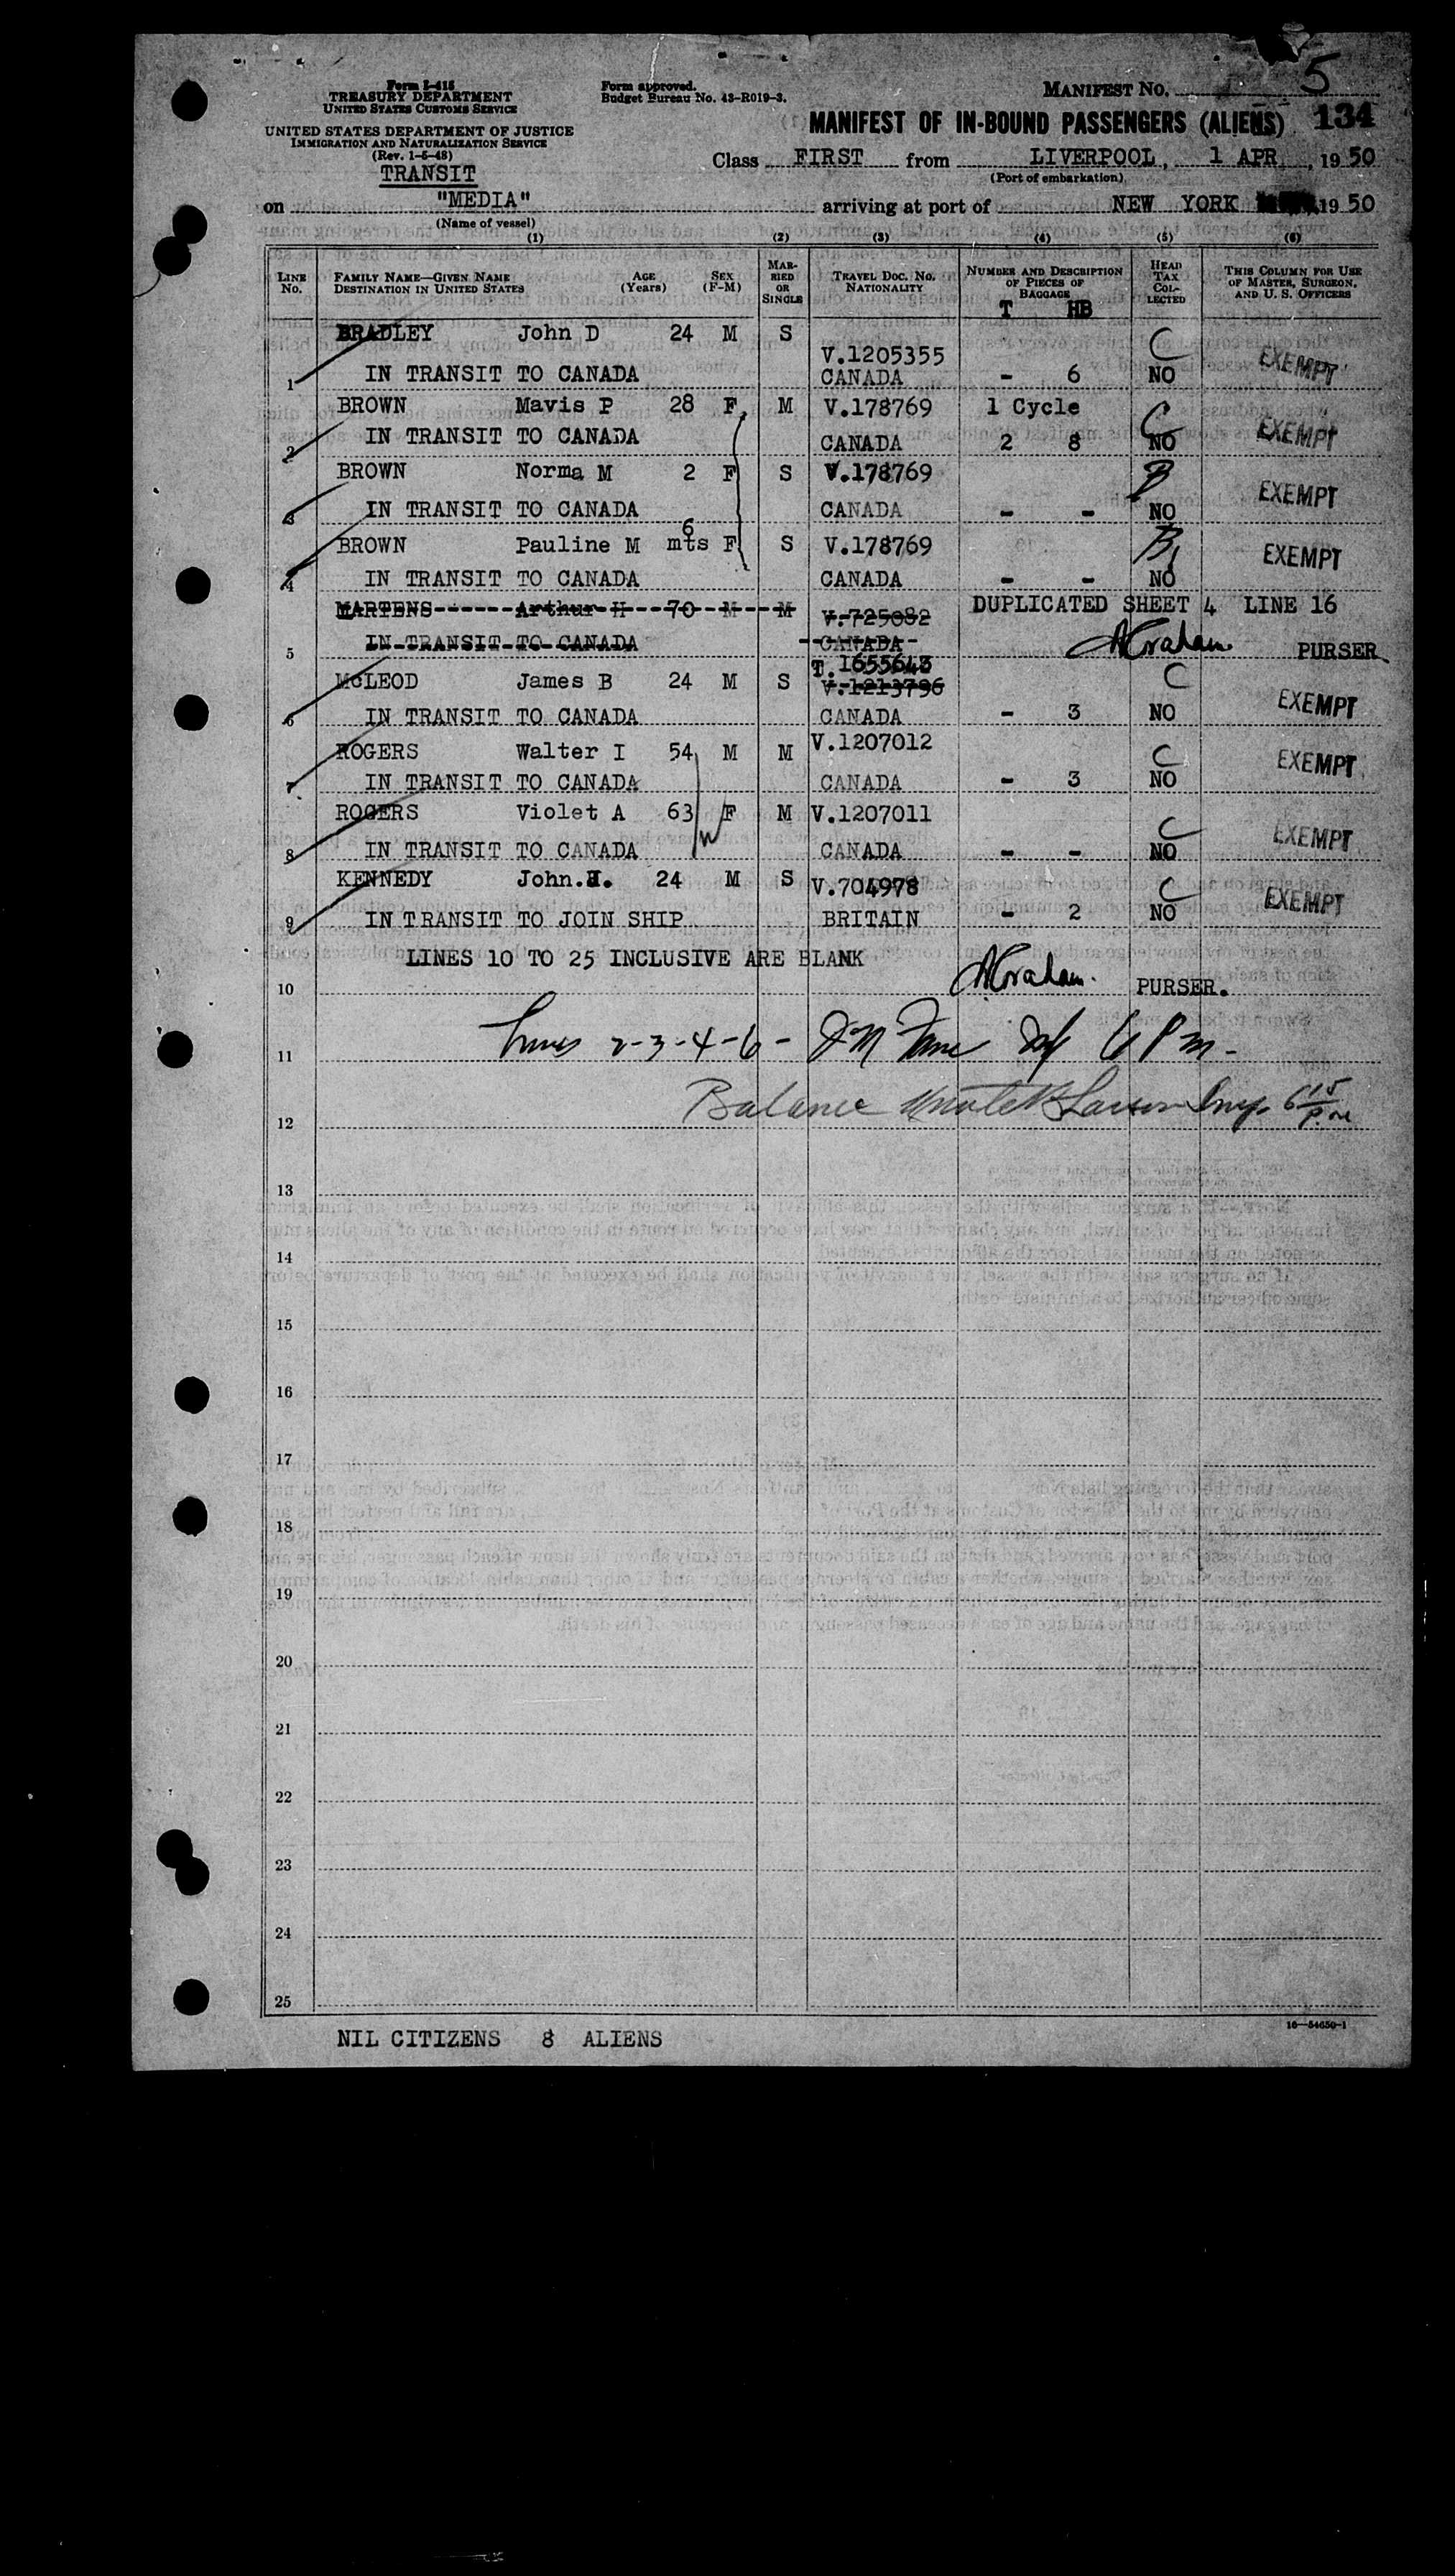 Form I-415
TREASURY DEPARTMENT
UNITED STATES CUSTOMS SERVICE
UNITED STATES DEPARTMENT OF JUSTICE
IMMIGRATION AND NATURALIZATION SERVICE
(Rev. 1-5-48)
TRANSIT
Form approved.
Budget Bureau No. 43-R019-3.
MANIFEST NO. 5
MANIFEST OF IN-BOUND PASSENGERS (ALIENS) 134
Class FIRST from LIVERPOOL, 1 APR, 19 50
(Port of embarkation)
on "MEDIA" arriving at port of NEW YORK 19 50
(Name of vessel)
(1) (2) (3) (4) (5) (6)
LINE NO. FAMILY NAME—GIVEN NAME DESTINATION IN UNITED STATES AGE (Years) SEX (F-M) MARRIED OR SINGLE TRAVEL DOC. NO. NATIONALITY NUMBER AND DESCRIPTION OF PIECES OF BAGGAGE HEAD TAX COLLECTED THIS COLUMN FOR USE OF MASTER, SURGEON, AND U. S. OFFICERS
T HB
BRADLEY John D 24 M S V.1205355 C EXEMPT
1 IN TRANSIT TO CANADA CANADA - 6 NO
BROWN Mavis P 28 F M V.178769 1 Cycle C EXEMPT
2 IN TRANSIT TO CANADA CANADA 2 8 NO
BROWN Norma M 2 F S V.178769 B EXEMPT
3 IN TRANSIT TO CANADA CANADA - - NO
BROWN Pauline M 6 mts F S V.178769 B EXEMPT
4 IN TRANSIT TO CANADA CANADA - - NO
MARTENS Arthur H 70 M M V.725082 DUPLICATED SHEET 4 LINE 16
5 IN TRANSIT TO CANADA CANADA PURSER
T.1655643
McLEOD James B 24 M S V.1213796 C EXEMPT
6 IN TRANSIT TO CANADA CANADA - 3 NO
ROGERS Walter I 54 M M V.1207012 C EXEMPT
7 IN TRANSIT TO CANADA CANADA - 3 NO
ROGERS Violet A 63 F M V.1207011 C EXEMPT
8 IN TRANSIT TO CANADA CANADA - - NO
KENNEDY John.H. 24 M S V.704978 C EXEMPT
9 IN TRANSIT TO JOIN SHIP BRITAIN - 2 NO
LINES 10 TO 25 INCLUSIVE ARE BLANK
10 PURSER.
11 Lines 2-3-4-6 - 6 Pm-
12 Balance Insp. 6 15 pm
13
14
15
16
17
18
19
20
21
22
23
24
25
16—54650-1
NIL CITIZENS 8 ALIENS